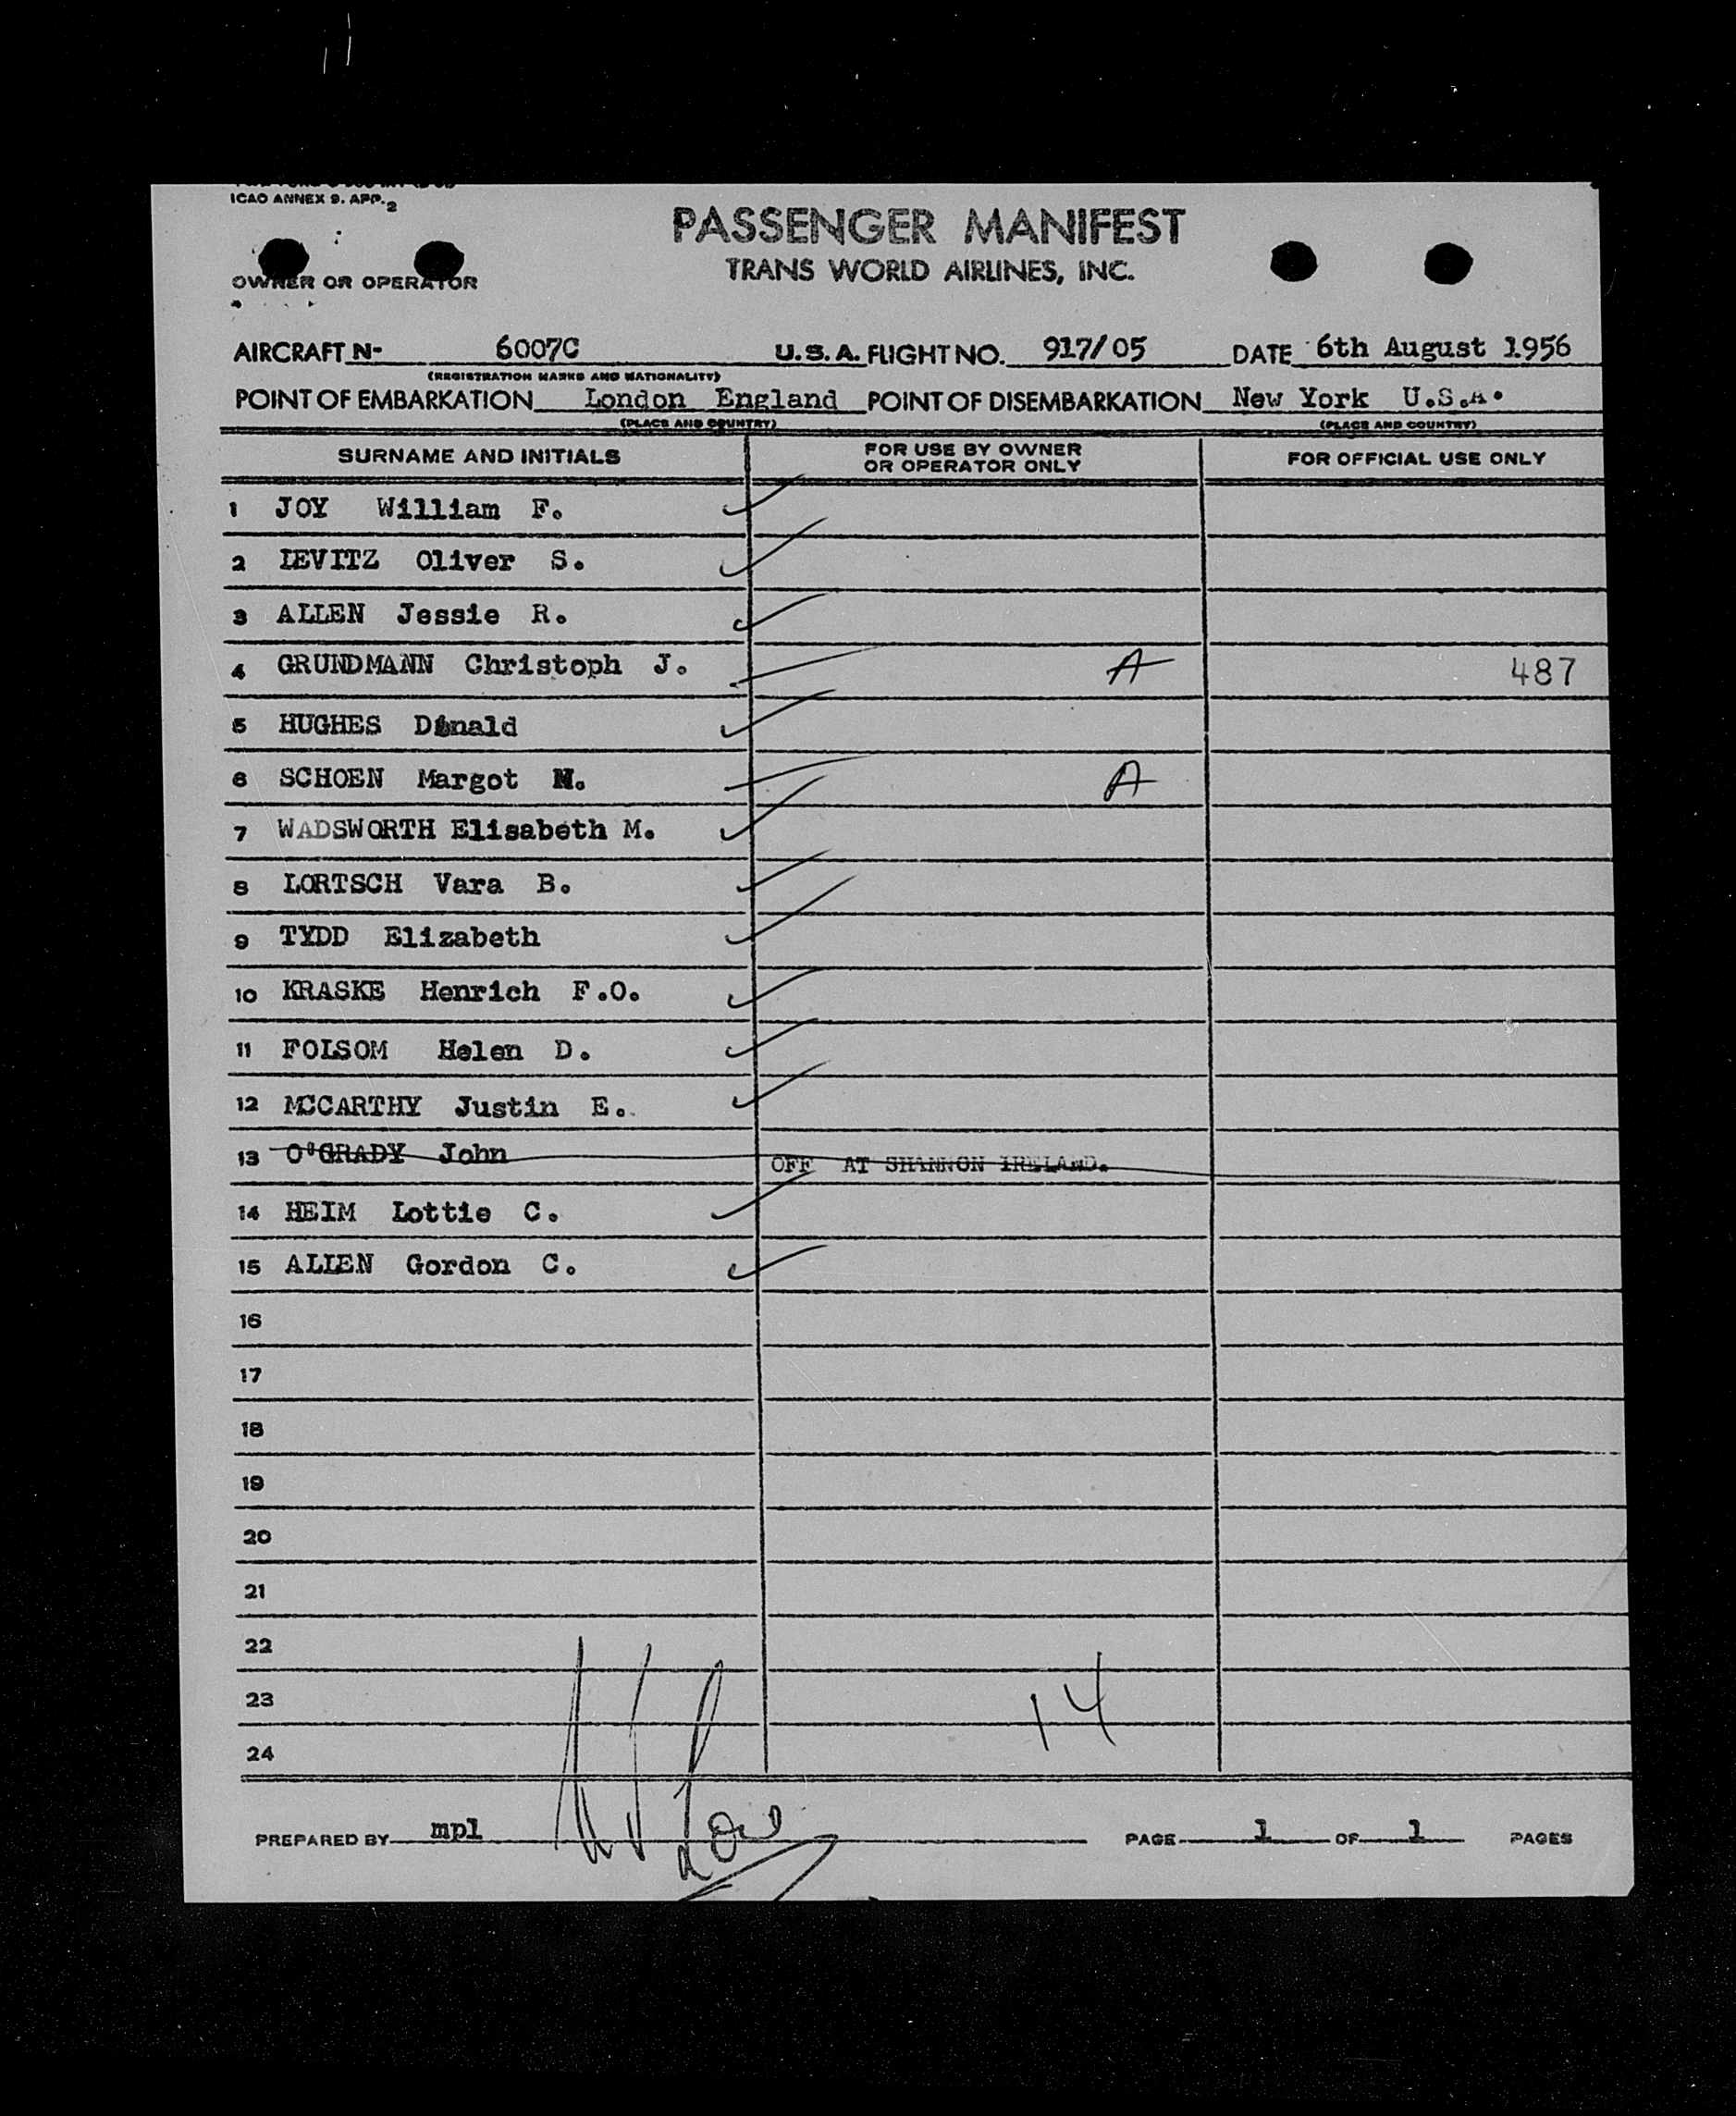 ICAO ANNEX 9. APP. 2
PASSENGER MANIFEST
TRANS WORLD AIRLINES, INC.
OWNER OR OPERATOR
AIRCRAFT N- 6007C U.S.A. FLIGHT NO. 917/05 DATE 6th August 1956
(REGISTRATION MARKS AND NATIONALITY)
POINT OF EMBARKATION London England POINT OF DISEMBARKATION New York U.S.A.
(PLACE AND COUNTRY) (PLACE AND COUNTRY)
SURNAME AND INITIALS FOR USE BY OWNER OR OPERATOR ONLY FOR OFFICIAL USE ONLY
1 JOY William F.
2 LEVITZ Oliver S.
3 ALLEN Jessie R.
4 GRUNDMANN Christoph J. A 487
5 HUGHES Donald
6 SCHOEN Margot N. A
7 WADSWORTH Elisabeth M.
8 LORTSCH Vara B.
9 TYDD Elizabeth
10 KRASKE Henrich F.O.
11 FOLSOM Helen D.
12 MCCARTHY Justin E.
13 O'GRADY John OFF AT SHANNON IRELAND.
14 HEIM Lottie C.
15 ALLEN Gordon C.
16
17
18
19
20
21
22
23 14
24
PREPARED BY mpl PAGE 1 OF 1 PAGES